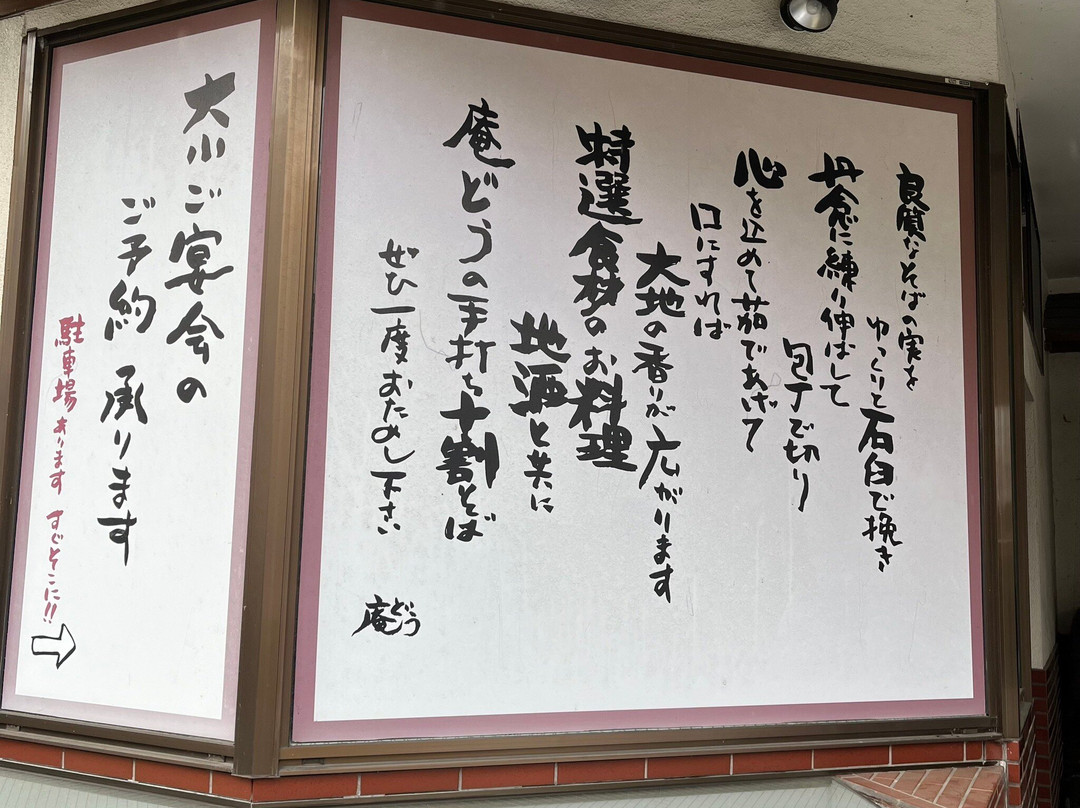 良質なそばの実を
ゆっくりと石臼で挽き
丹念に練り伸ばして
包丁で切り
心を込めて茹であげて
口にすれば
大地の香りが広がります
特選食材のお料理
地酒と共に
庵どうの手打ち十割そば
ぜひ一度おためし下さい
庵どう
大小ご宴会の
ご予約承ります
駐車場あります すぐそこに!!